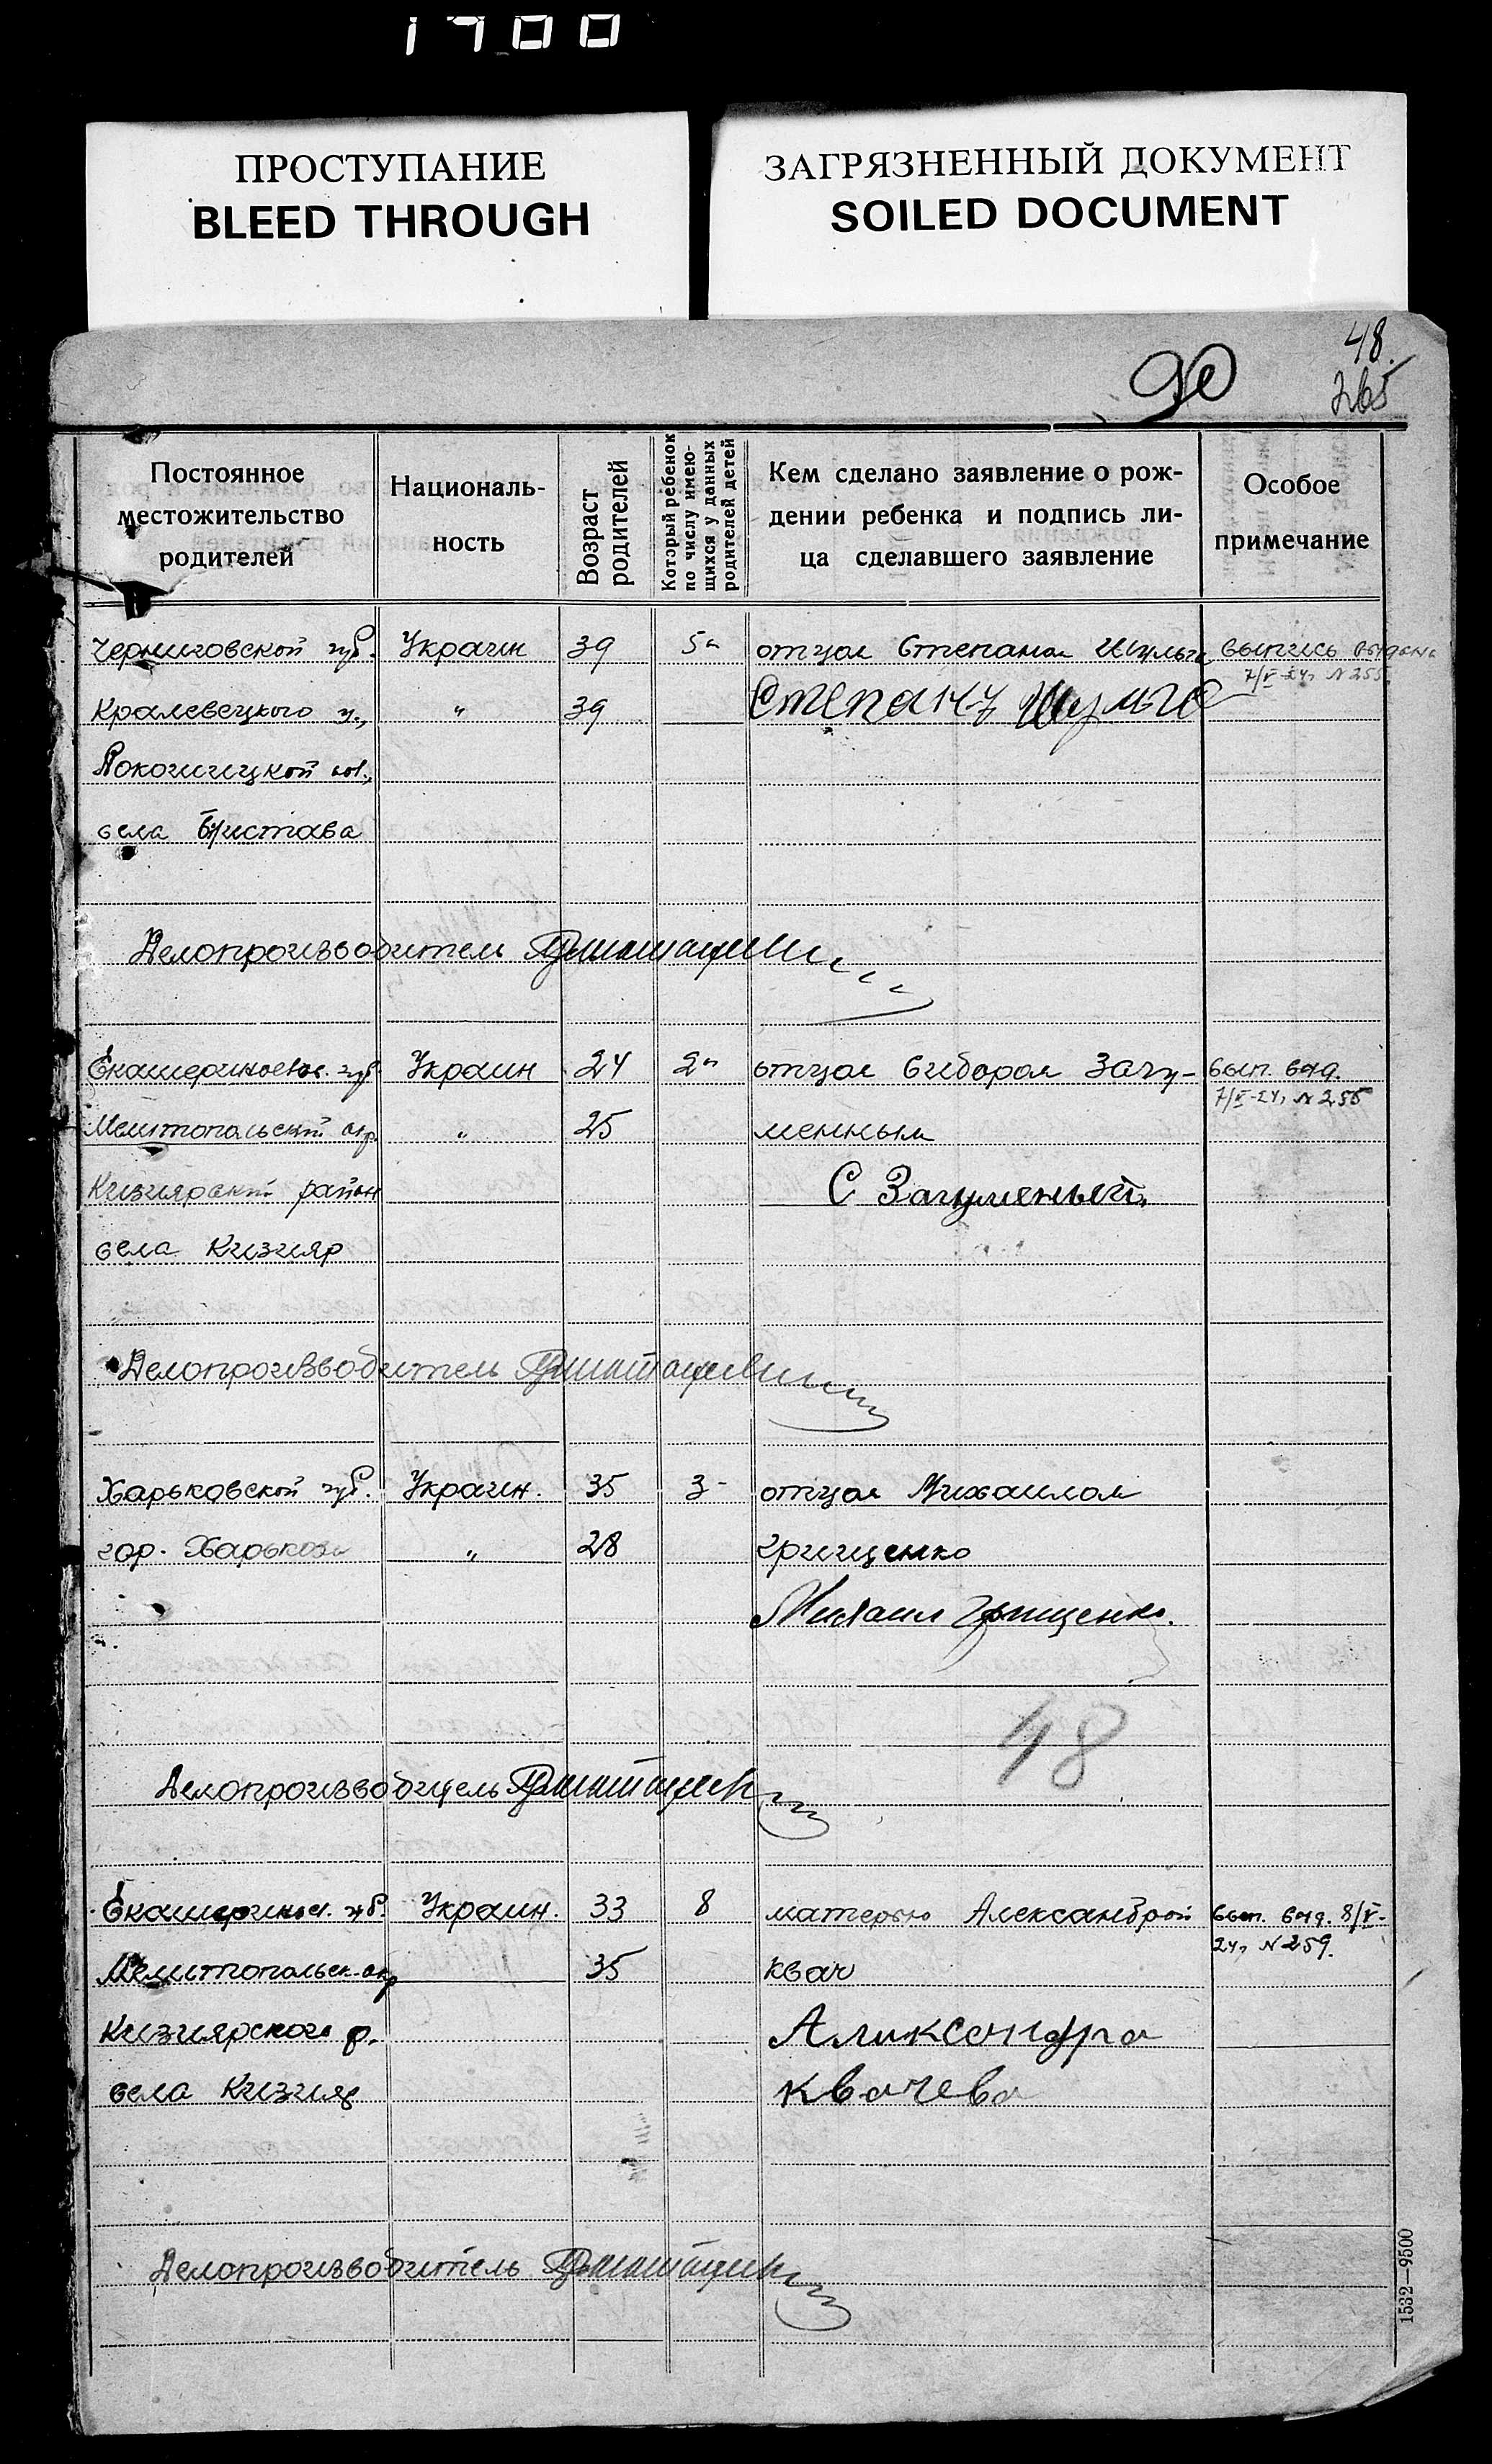 1700
ПРОСТУПАНИЕ
BLEED THROUGH
ЗАГРЯЗНЕННЫЙ ДОКУМЕНТ
SOILED DOCUMENT
48.
90
265
Постоянное местожительство родителей
Националь-ность
Возраст родителей
Который ребенок по числу имею-щихся у данных родителей детей
Кем сделано заявление о рож-дении ребенка и подпись ли-ца сделавшего заявление
Особое примечание
Черниговской губ. Украин 39 5й отцом Степаном Шульга выпись выдана
7/V-24, N 255.
Кралевецкого у., " 39 Степану Шульга
села
Делопроизводитель
Екатеринослав. губ. Украин 24 2й отцом Сидором Загу- вып. выд.
7/V-24, N 256
Мелитопольский окр. " 25 менным
Кизиярский район С Загуменый
села Кизияр
Делопроизводитель
Харьковской губ. Украин. 35 3- отцом Михаилом
гор. Харькова " 28 Грищенко
Михаил Грищенко.
48
Делопроизводитель
Екатеринос. губ. Украин. 33 8 матерью Александрой вып. выд. 8/V-
24, N 259.
Мелитопольск. окр 35 Квач
Кизиярского р. Александра
села Кизияр Квачева
Делопроизводитель
1532—9500